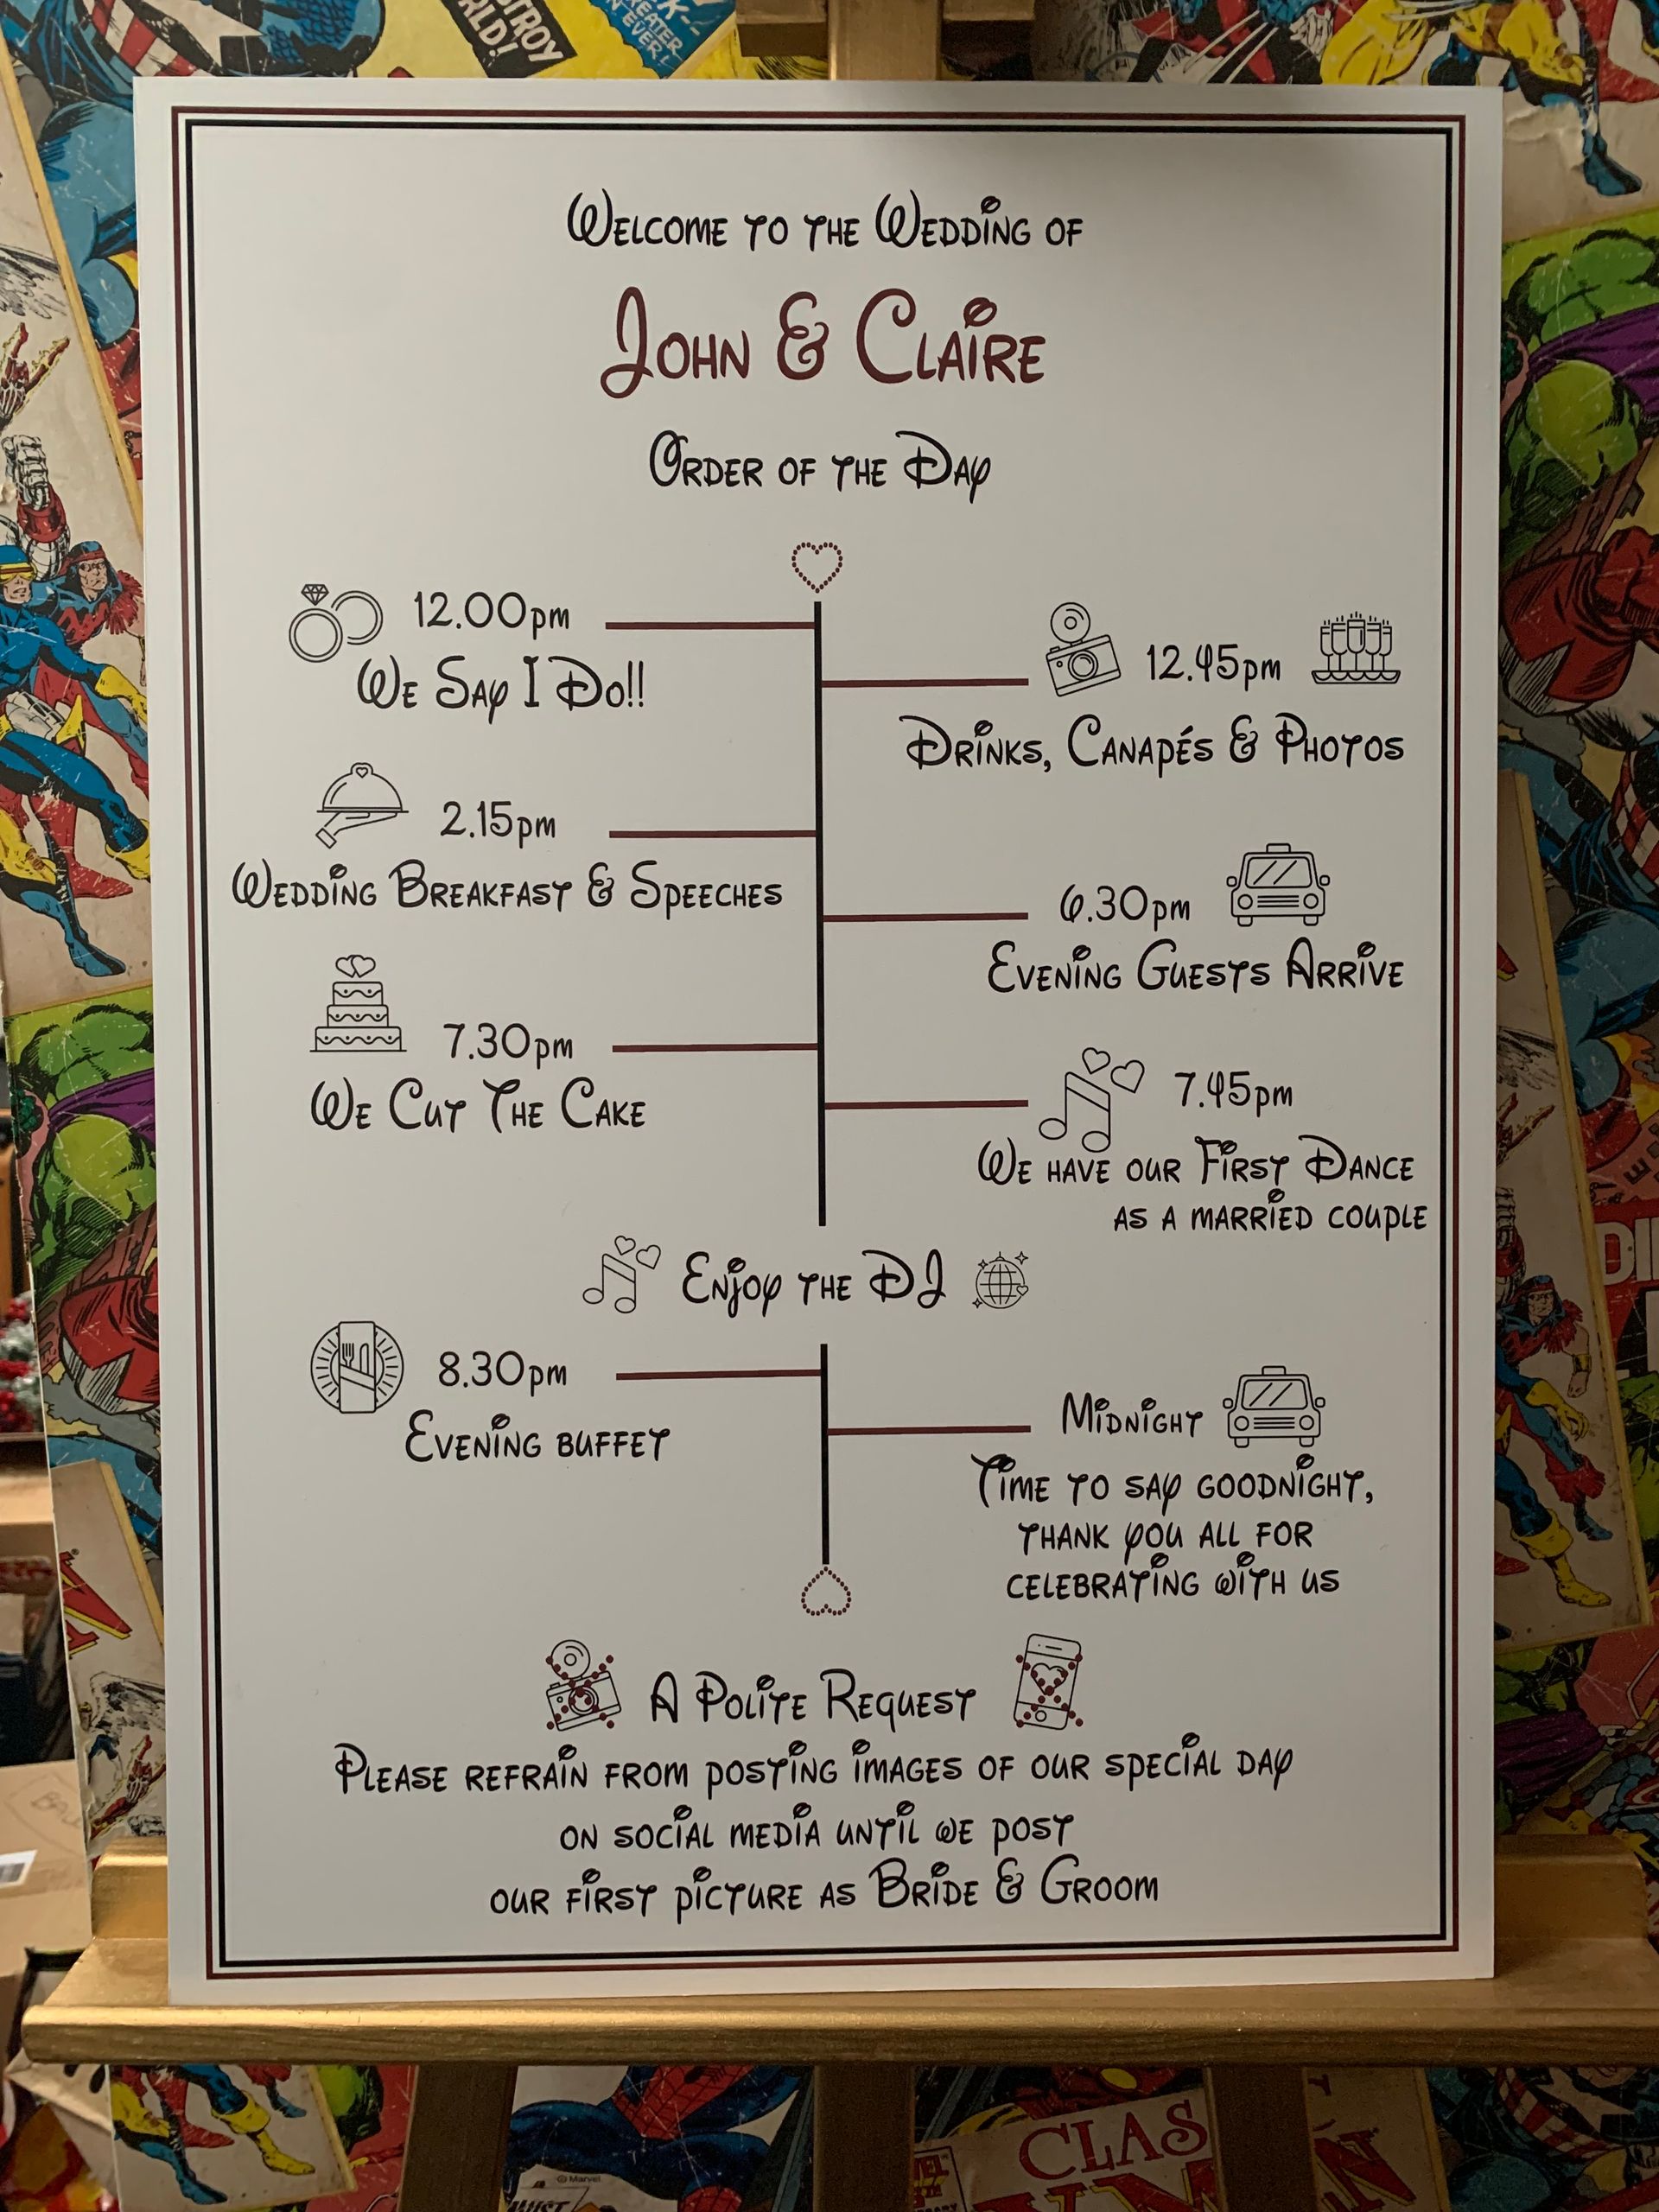 Welcome to the Wedding of
John & Claire
Order of the Day
12.00pm
We Say I Do!!
12.45pm
Drinks, Canapés & Photos
2.15pm
Wedding Breakfast & Speeches
6.30pm
Evening Guests Arrive
7.30pm
We Cut The Cake
7.45pm
We have our First Dance
as a married couple
Enjoy the DJ
8.30pm
Evening buffet
Midnight
Time to say goodnight,
thank you all for
celebrating with us
A Polite Request
Please refrain from posting images of our special day
on social media until we post
our first picture as Bride & Groom
CLAS
© Marvel